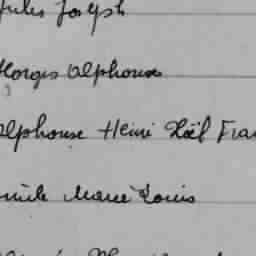 Jules Joseph
Georges Alphonse
Alphonse Henri Noël Fran
Emile Marie Louis